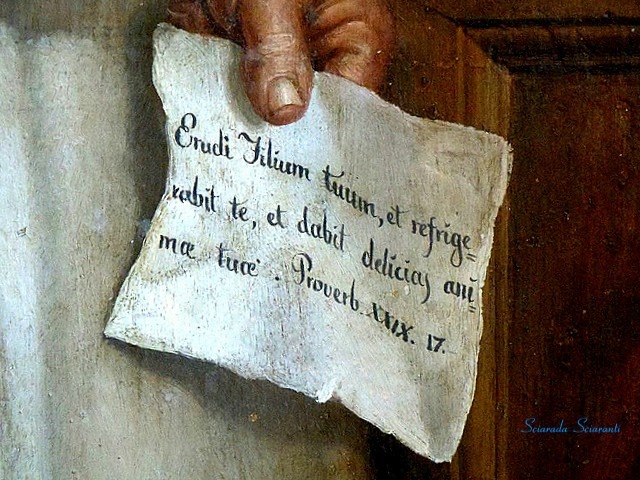 Erudi Filium tuum, et refrige=
rabit te, et dabit delicias ani=
mæ tuæ. Proverb. XXIX. 17.
Sciarada Sciaranti